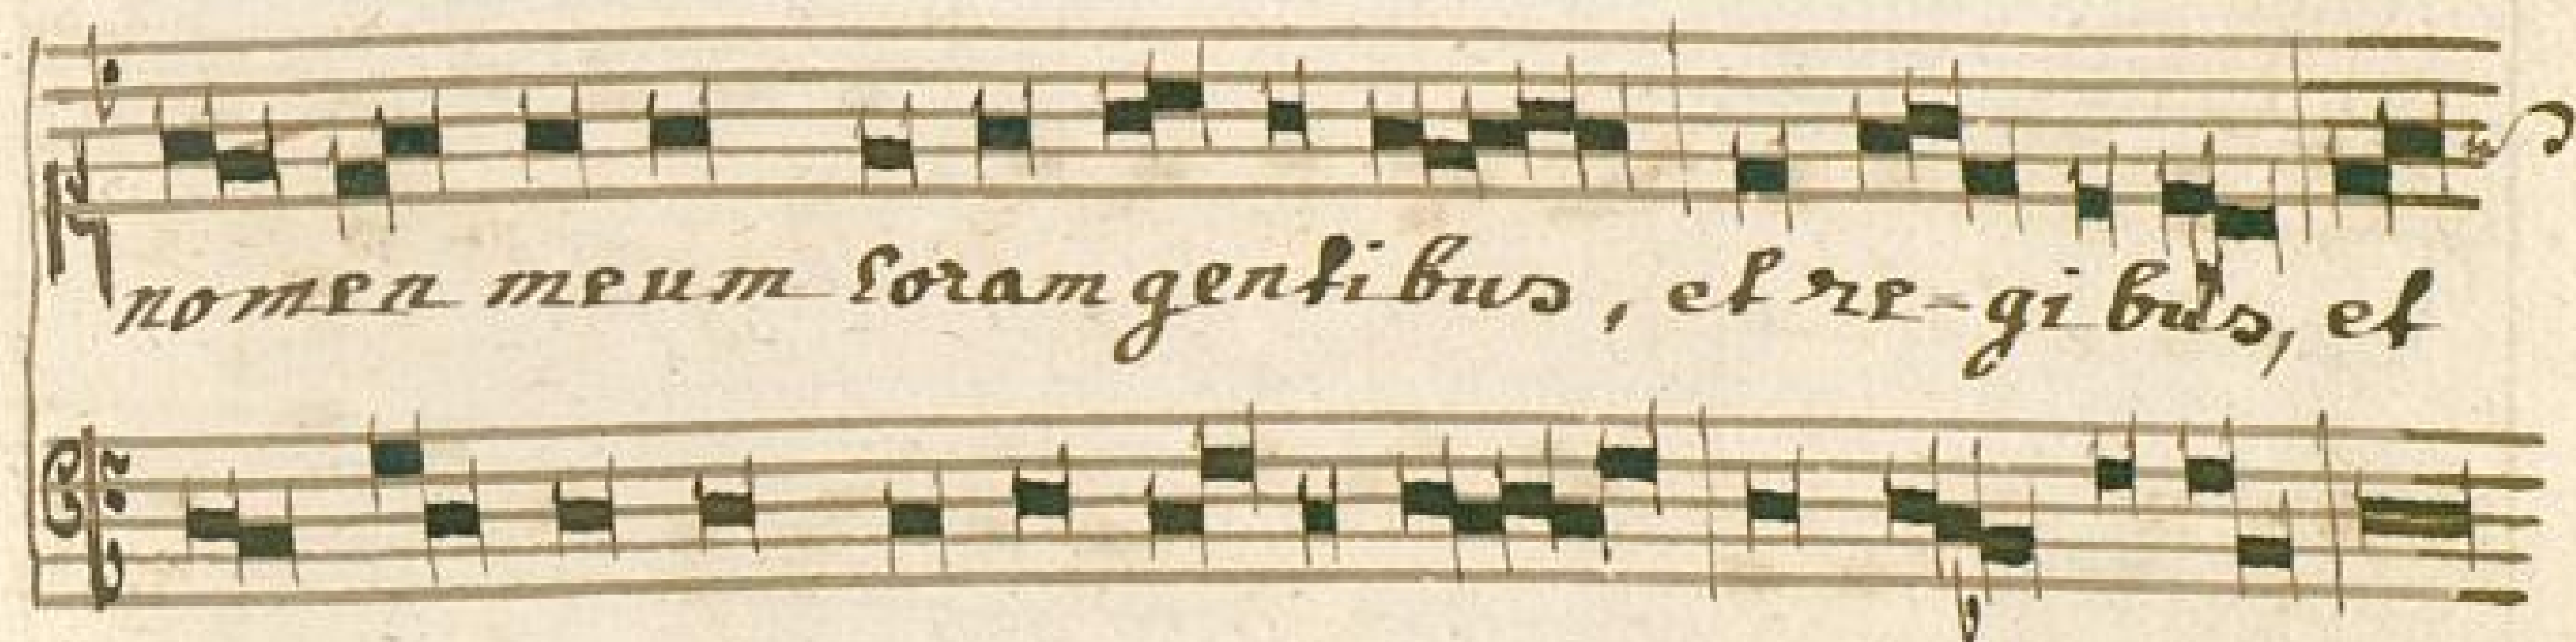 nomen meum Coram gentibus, et re-gi bus, et